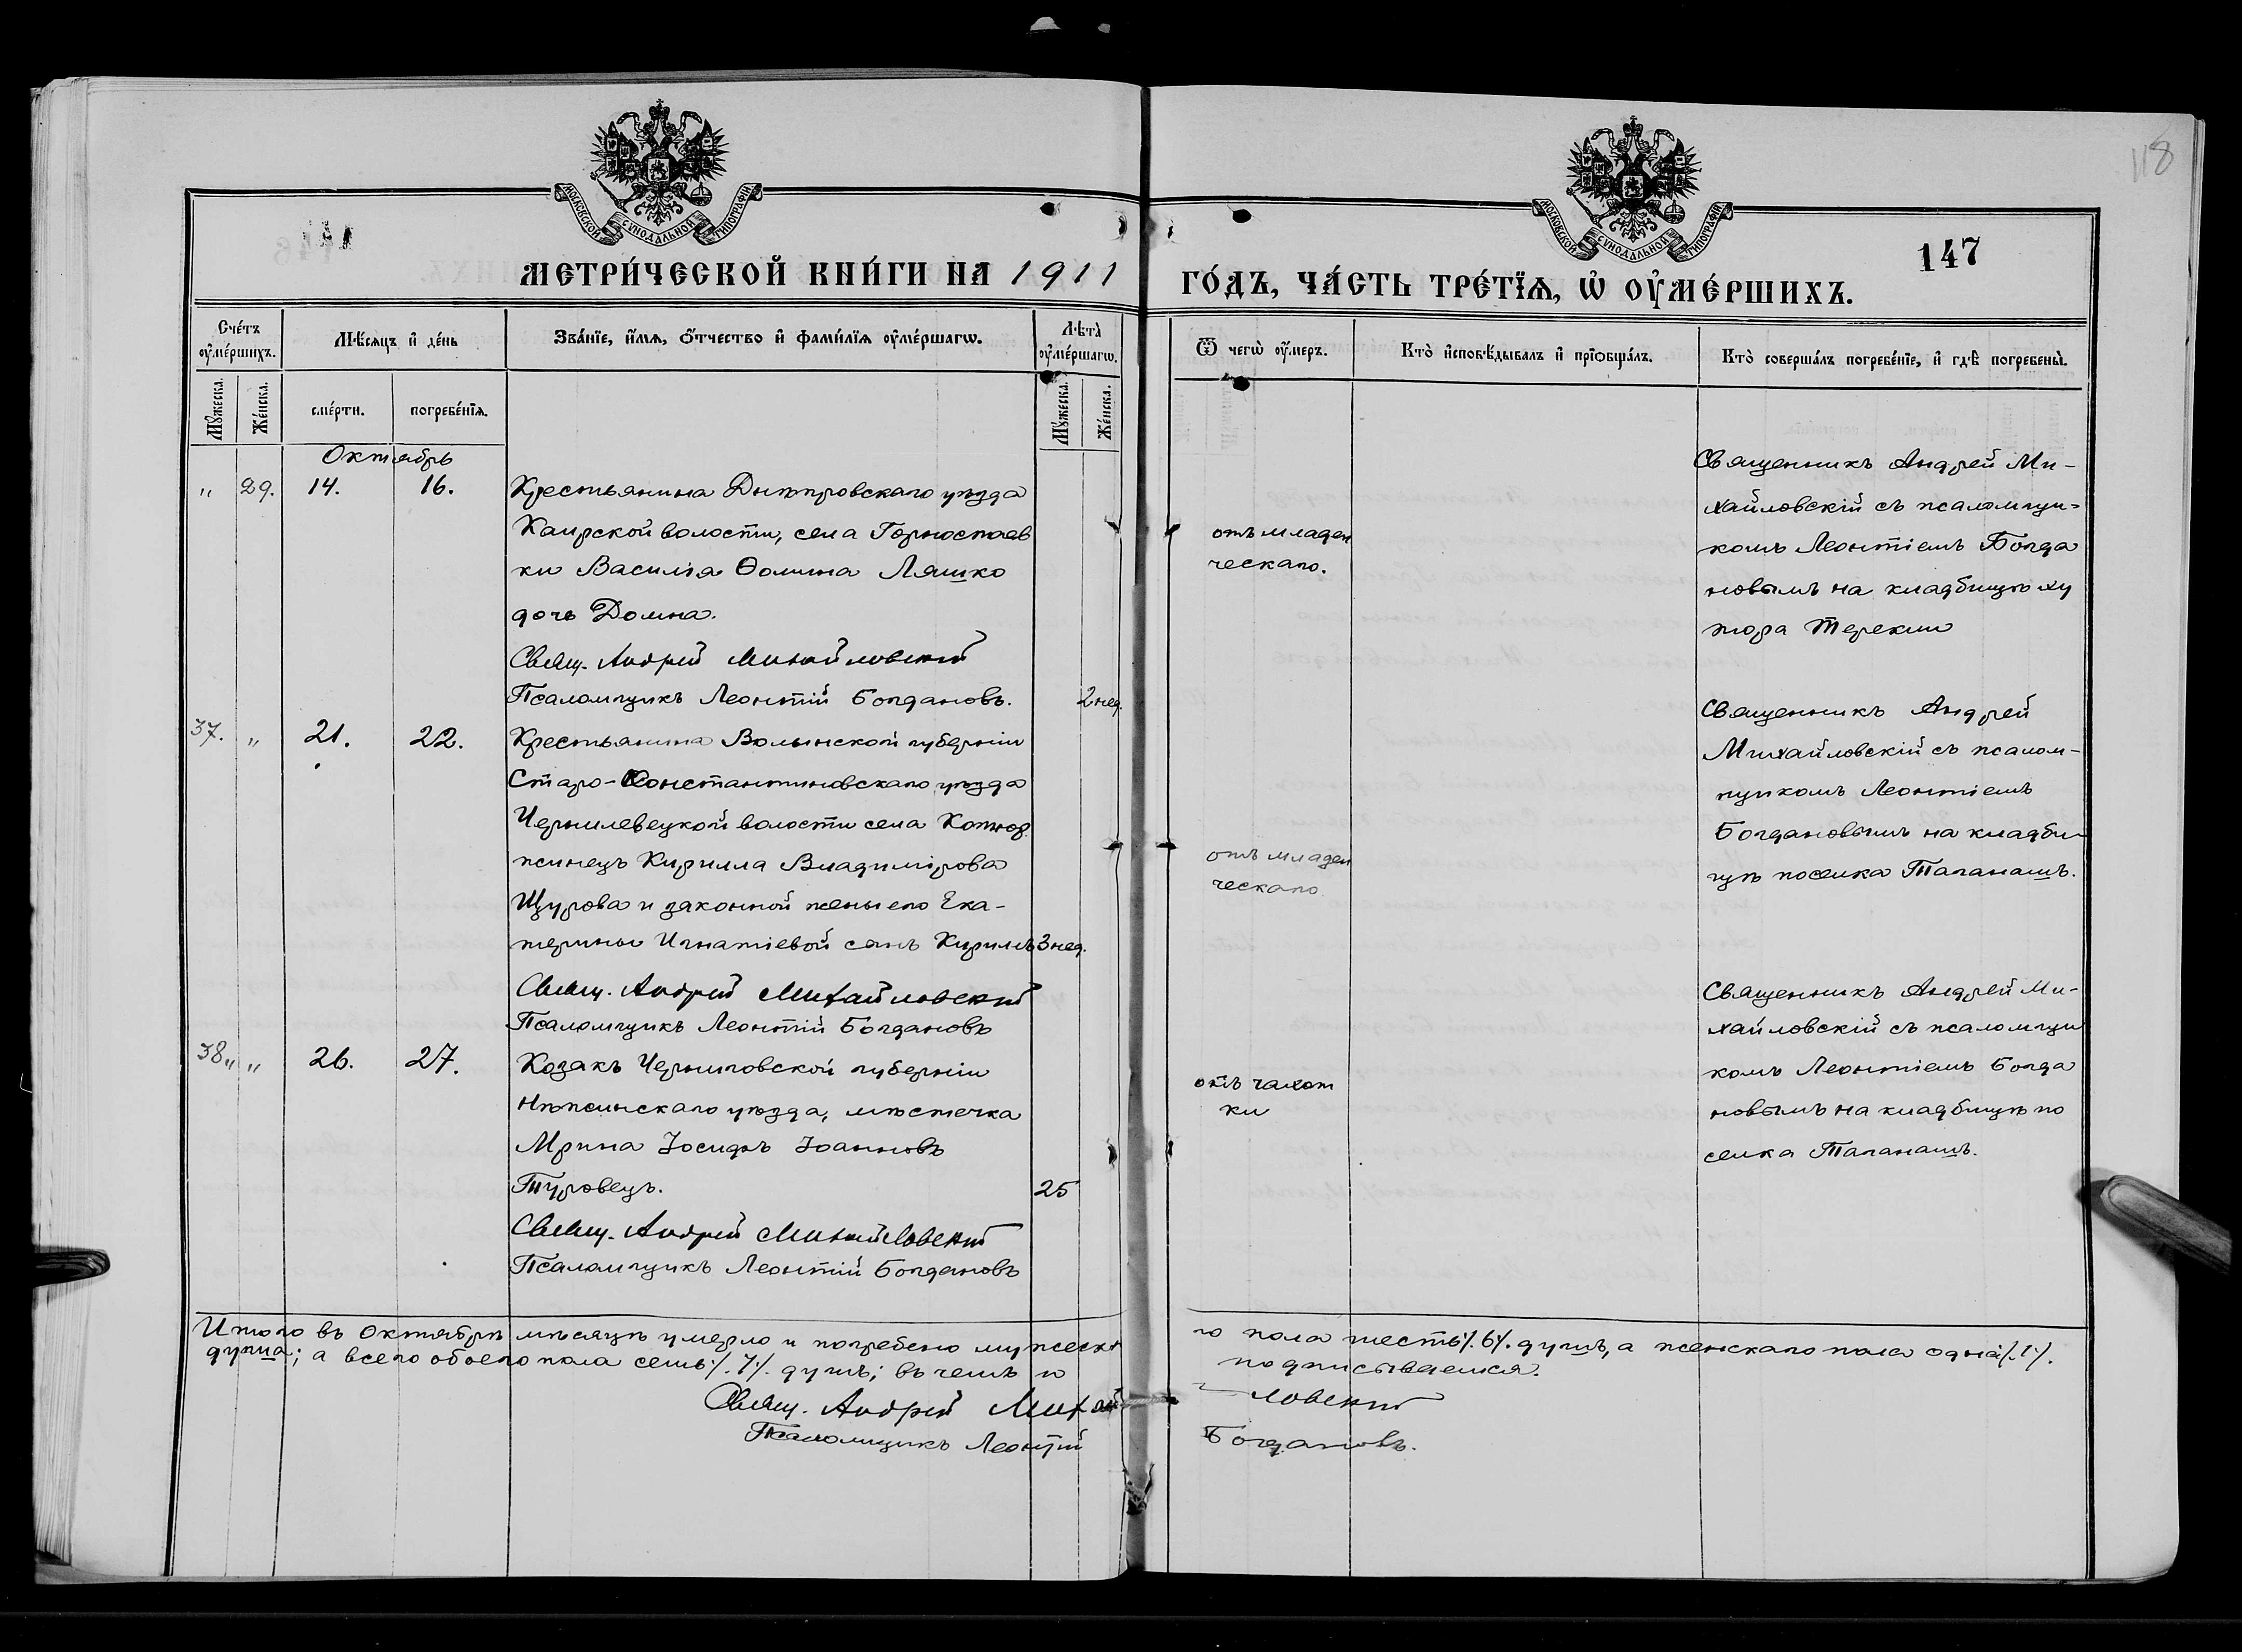 118
МОСКОВСКОЙ СѴНОДАЛЬНОЙ ТИПОГРАФІИ
МОСКОВСКОЙ СѴНОДАЛЬНОЙ ТИПОГРАФІИ
147
МЕТРИ́ЧЕСКОЙ КНИ́ГИ НА 1911
ГО́ДЪ, ЧА́СТЬ ТРЕ́ТЇѦ, Ѡ҆ ОУ҆МЕ́РШИХЪ.
Сче́тъ оу҆ме́ршихъ.
Мѣ́сяцъ и҆ де́нь
Зва́нїе, и҆́мѧ, ѻ҆́тчество и҆ фами́лїѧ оу҆ме́ршагѡ.
Лѣта̀ оу҆ме́ршагѡ.
Ѿ чегѡ̀ оу҆́меръ.
Кто̀ и҆сповѣ́дывалъ и҆ прїѻбща́лъ.
Кто̀ соверша́лъ погребе́нїе, и҆ гдѣ̀ погребены̀.
Мꙋ́жеска.
Же́нска.
сме́рти.
погребе́нїѧ.
Мꙋ́жеска.
Же́нска.
Октябрь
" 29. 14. 16.
Крестьянина Днѣпровскаго уѣзда
Каирской волости, села Горностаев
ки Василія Ѳомина Ляшко
дочь Домна.
Свящ. Андрей Михайловский
Псаломщикъ Леонтій Богдановъ.
2 нед.
отъ младен
ческаго.
Священникъ Андрей Ми-
хайловскій съ псаломщи-
комъ Леонтіемъ Богда
новымъ на кладбищѣ ху
тора Терекли
37. " 21. 22.
Крестьянина Волынской губерніи
Старо-Константиновскаго уѣзда
Чернилевецкой волости села
Кирилла Владимірова
Щурова и законной жены его Ека-
терины Игнатіевой сынъ Кириллъ
3 нед.
Свящ. Андрей Михайловский
Псаломщикъ Леонтій Богдановъ
отъ младен
ческаго
Священникъ Андрей
Михайловскій съ псалом-
щикомъ Леонтіемъ
Богдановымъ на кладби-
щѣ поселка Таганашъ.
38 " " 26. 27.
Козакъ Черниговской губерніи
Нѣжинскаго уѣзда, мѣстечка
Мрина Іосифъ Іоанновъ
Туровецъ.
25
Свящ. Андрей Михайловский
Псаломщикъ Леонтій Богдановъ
отъ чахот
ки
Священникъ Андрей Ми-
хайловскій съ псаломщи
комъ Леонтіемъ Богда
новымъ на кладбищѣ по
селка Таганашъ.
Итого въ Октябрѣ мѣсяцѣ умерло и погребено мужеска
го пола шесть /.6/. душъ, а женскаго пола одна /.1/.
душа; а всего обоего пола семь /.7/. душъ; въ чемъ и
подписываемся.
Свящ. Андрей Михай
ловский
Псаломщикъ Леонтій
Богдановъ.